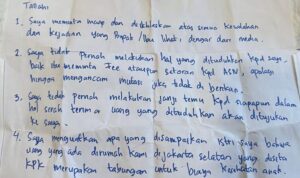 1. Saya meminta maaf dan atas semua
dan kejadian yang Bapak / Ibu lihat dengar dari media.
2. Saya tidak Pernah melakukan hal yang dituduhkan kpd saya,
baik itu meminta Fee ataupun setoran kpd MSN, apalagi
hingga mengancam mutasi jika tidak di berikan.
3. Saya tidak Pernah melakukan janji temu kpd siapapun dalam
hal serah terima uang yang dituduhkan akan ditujukan
ke saya.
4. Saya menguatkan apa yang disampaikan istri saya bahwa
uang yang ada dirumah kami dijakarta selatan yang disita
KPK merupakan tabungan untuk biaya kesehatan anak.